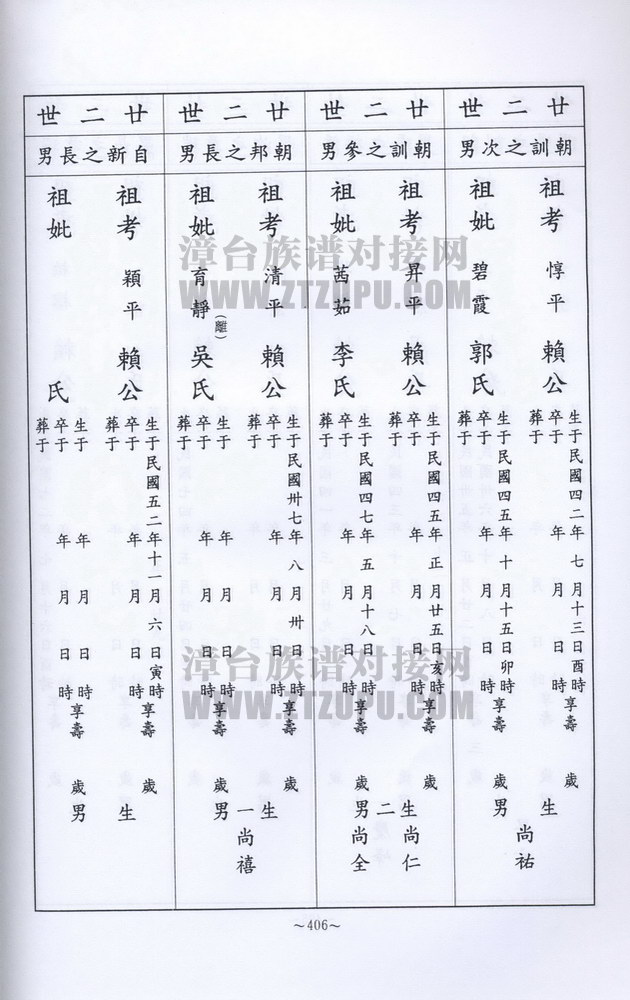 廿二世
朝訓之次男
祖考 惇平 賴公
生于民國四二年七月十三日酉時享壽 歲
卒于 年 月 日
葬于
祖妣 碧霞 郭氏
生于民國四五年十月十五日卯時享壽 歲
卒于 年 月 日
葬于
生 男
尚祐
廿二世
朝訓之參男
祖考 昇平 賴公
生于民國四五年正月廿五日亥時享壽 歲
卒于 年 月 日
葬于
祖妣 茜茹 李氏
生于民國四七年五月十八日 時享壽 歲
卒于 年 月 日
葬于
生二男
尚仁
尚全
廿二世
朝邦之長男
祖考 清平 賴公
生于民國卅七年八月卅日 時享壽 歲
卒于 年 月 日
葬于
祖妣 育靜(離) 吳氏
生于 年 月 日 時享壽 歲
卒于 年 月 日
葬于
生一男
尚禧
廿二世
自新之長男
祖考 穎平 賴公
生于民國五二年十一月六日寅時享壽 歲
卒于 年 月 日
葬于
祖妣 氏
生于 年 月 日 時享壽 歲
卒于 年 月 日
葬于
生 男
～406～
漳台族谱对接网
WWW.ZTZUPU.COM
漳台族谱对接网
WWW.ZTZUPU.COM